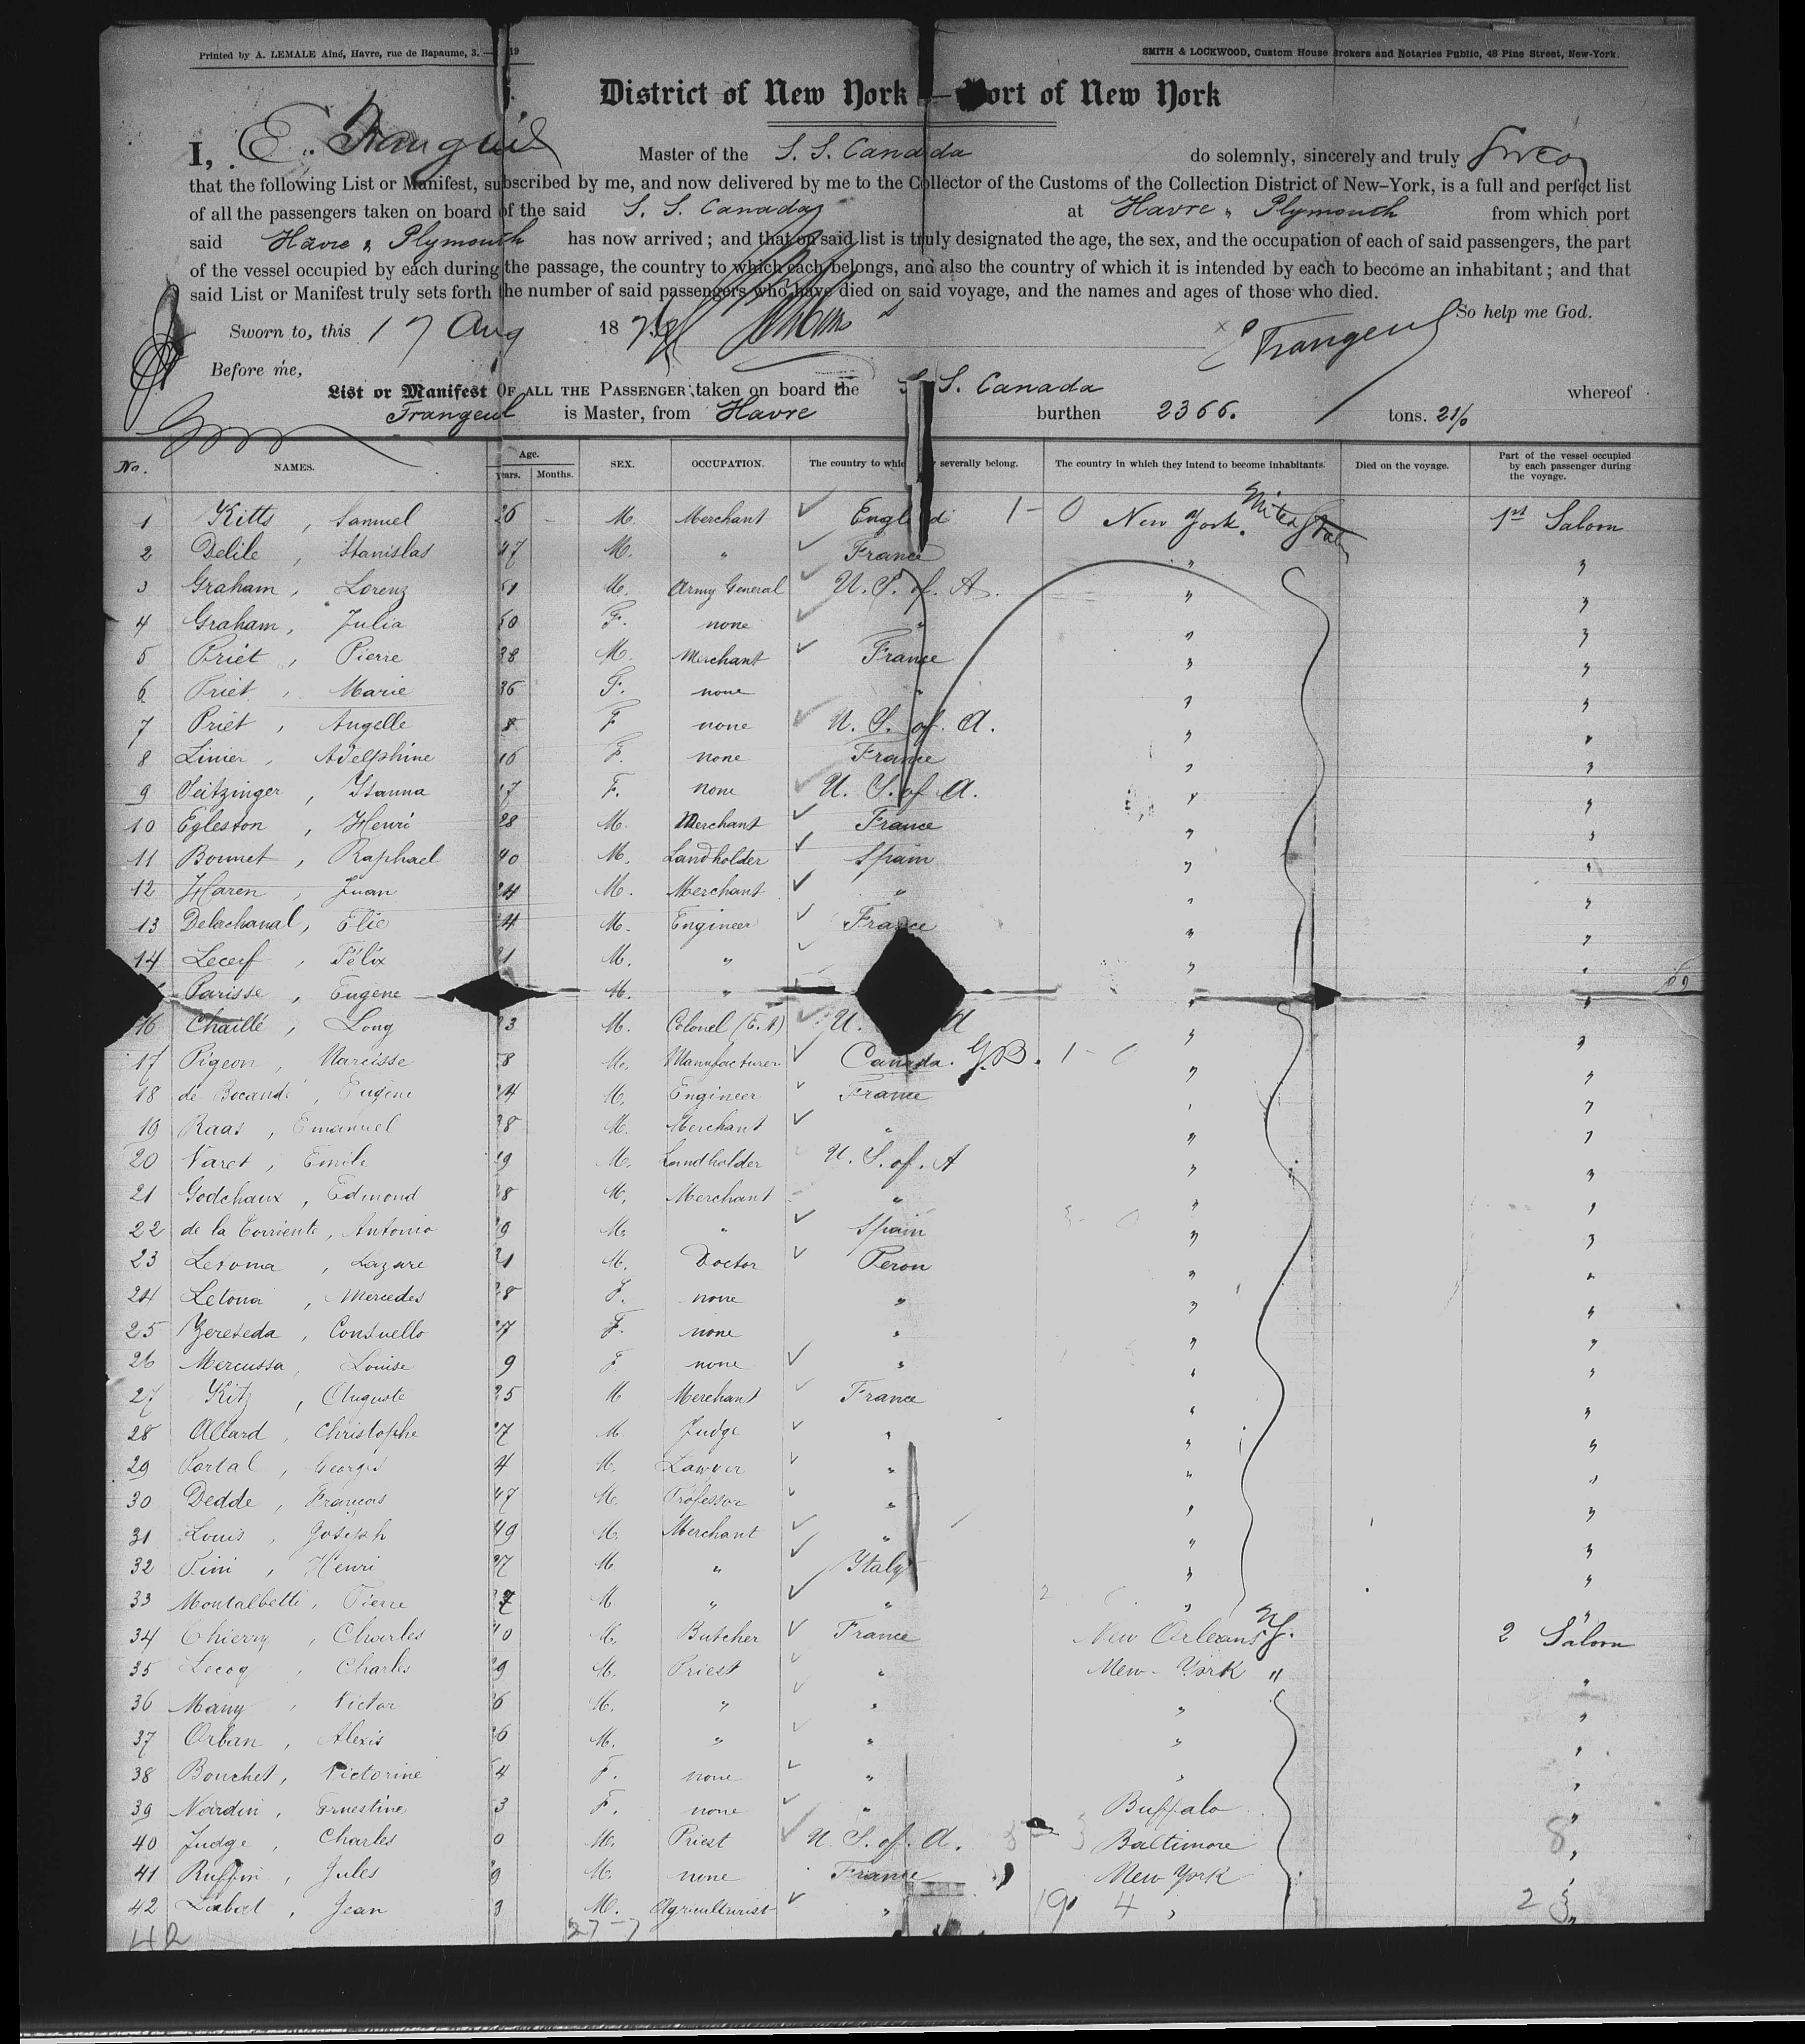 Printed by A. LEMALE Aîné, Havre, rue de Bapaume, 3. — 19
SMITH & LOCKWOOD, Custom House Brokers and Notaries Public, 48 Pine Street, New-York.
District of New York — Port of New York
I, E. Frangeul Master of the S. S. Canada do solemnly, sincerely and truly Swear
that the following List or Manifest, subscribed by me, and now delivered by me to the Collector of the Customs of the Collection District of New-York, is a full and perfect list
of all the passengers taken on board of the said S. S. Canada at Havre & Plymouth from which port
said Havre & Plymouth has now arrived; and that on said list is truly designated the age, the sex, and the occupation of each of said passengers, the part
of the vessel occupied by each during the passage, the country to which each belongs, and also the country of which it is intended by each to become an inhabitant; and that
said List or Manifest truly sets forth the number of said passengers who have died on said voyage, and the names and ages of those who died.
So help me God.
Sworn to, this 17 Aug 187 E Frangeul
Before me,
List or Manifest OF ALL THE PASSENGER taken on board the S. S. Canada whereof
Frangeul is Master, from Havre burthen 2366. tons.
No. NAMES. Age. Years. Months. SEX. OCCUPATION. The country to which they severally belong. The country in which they intend to become inhabitants. Died on the voyage. Part of the vessel occupied by each passenger during the voyage.
1 Kitts, Samuel 26 M. Merchant England 1 - 0 New York. United States 1st Saloon
2 Delile, Stanislas 47 M. " France " "
3 Graham, Lorenz 51 M. Army General U. S. of. A. " "
4 Graham, Julia 50 F. none " " "
5 Priet, Pierre 38 M. Merchant France " "
6 Priet, Marie 36 F. none " " "
7 Priet, Angelle 8 F none U. S. of. A. " "
8 Linier, Adelphine 16 F. none France " "
9 Seitzinger, Isanna 17 F. none U. S. of A. " "
10 Egleston, Henri 28 M. Merchant France " "
11 Bonnet, Raphael 40 M. Landholder Spain " "
12 Haren, Juan 24 M. Merchant " " "
13 Delachanal, Elie 24 M. Engineer France " "
14 Lecerf, Félix 21 M. " " "
Parisse, Eugène M. " " "
16 Chaillé, Long 33 M. Colonel (E. A) U. A " "
17 Pigeon, Narcisse 58 M. Manufacturer Canada. G.B. 1 - 0 " "
18 de Bocandé, Eugène 24 M. Engineer France " "
19 Raas, Emanuel 38 M. Merchant " " "
20 Varet, Emile 9 M. Landholder U. S. of. A " "
21 Godchaux, Edmond 28 M. Merchant " " "
22 de la Torriente, Antonio 9 M. " Spain " "
23 Letona, Lazare 21 M. Doctor Perou " "
24 Letona, Mercedes 28 F. none " " "
25 Zereseda, Consuello 27 F. none " " "
26 Mercussa, Louise 9 F. none " " "
27 Kitz, Auguste 25 M Merchant France " "
28 Allard, Christophe 7 M. Judge " " "
29 Portal, Georges 4 M. Lawyer " " "
30 Dedde, François 47 M. Professor " " "
31 Louis, Joseph 49 M. Merchant " " "
32 Pini, Henri 27 M " Italy " "
33 Montalbetti, Pierre M. " " " "
34 Thierry, Charles 40 M. Butcher France New Orleans 2 Saloon
35 Lecoq, Charles 9 M. Priest " New-York " "
36 Many, Victor 6 M. " " " "
37 Orban, Alexis 6 M. " " " "
38 Bouchet, Victorine 4 F. none " " "
39 Nardin, Ernestine 3 F. none " Buffalo "
40 Judge, Charles 0 M. Priest U. S. of. A. Baltimore 8 "
41 Ruffin, Jules 9 M. none France New York "
42 Labat, Jean 3 M. Agriculturist " 19 4 " 2 "
42 27-7